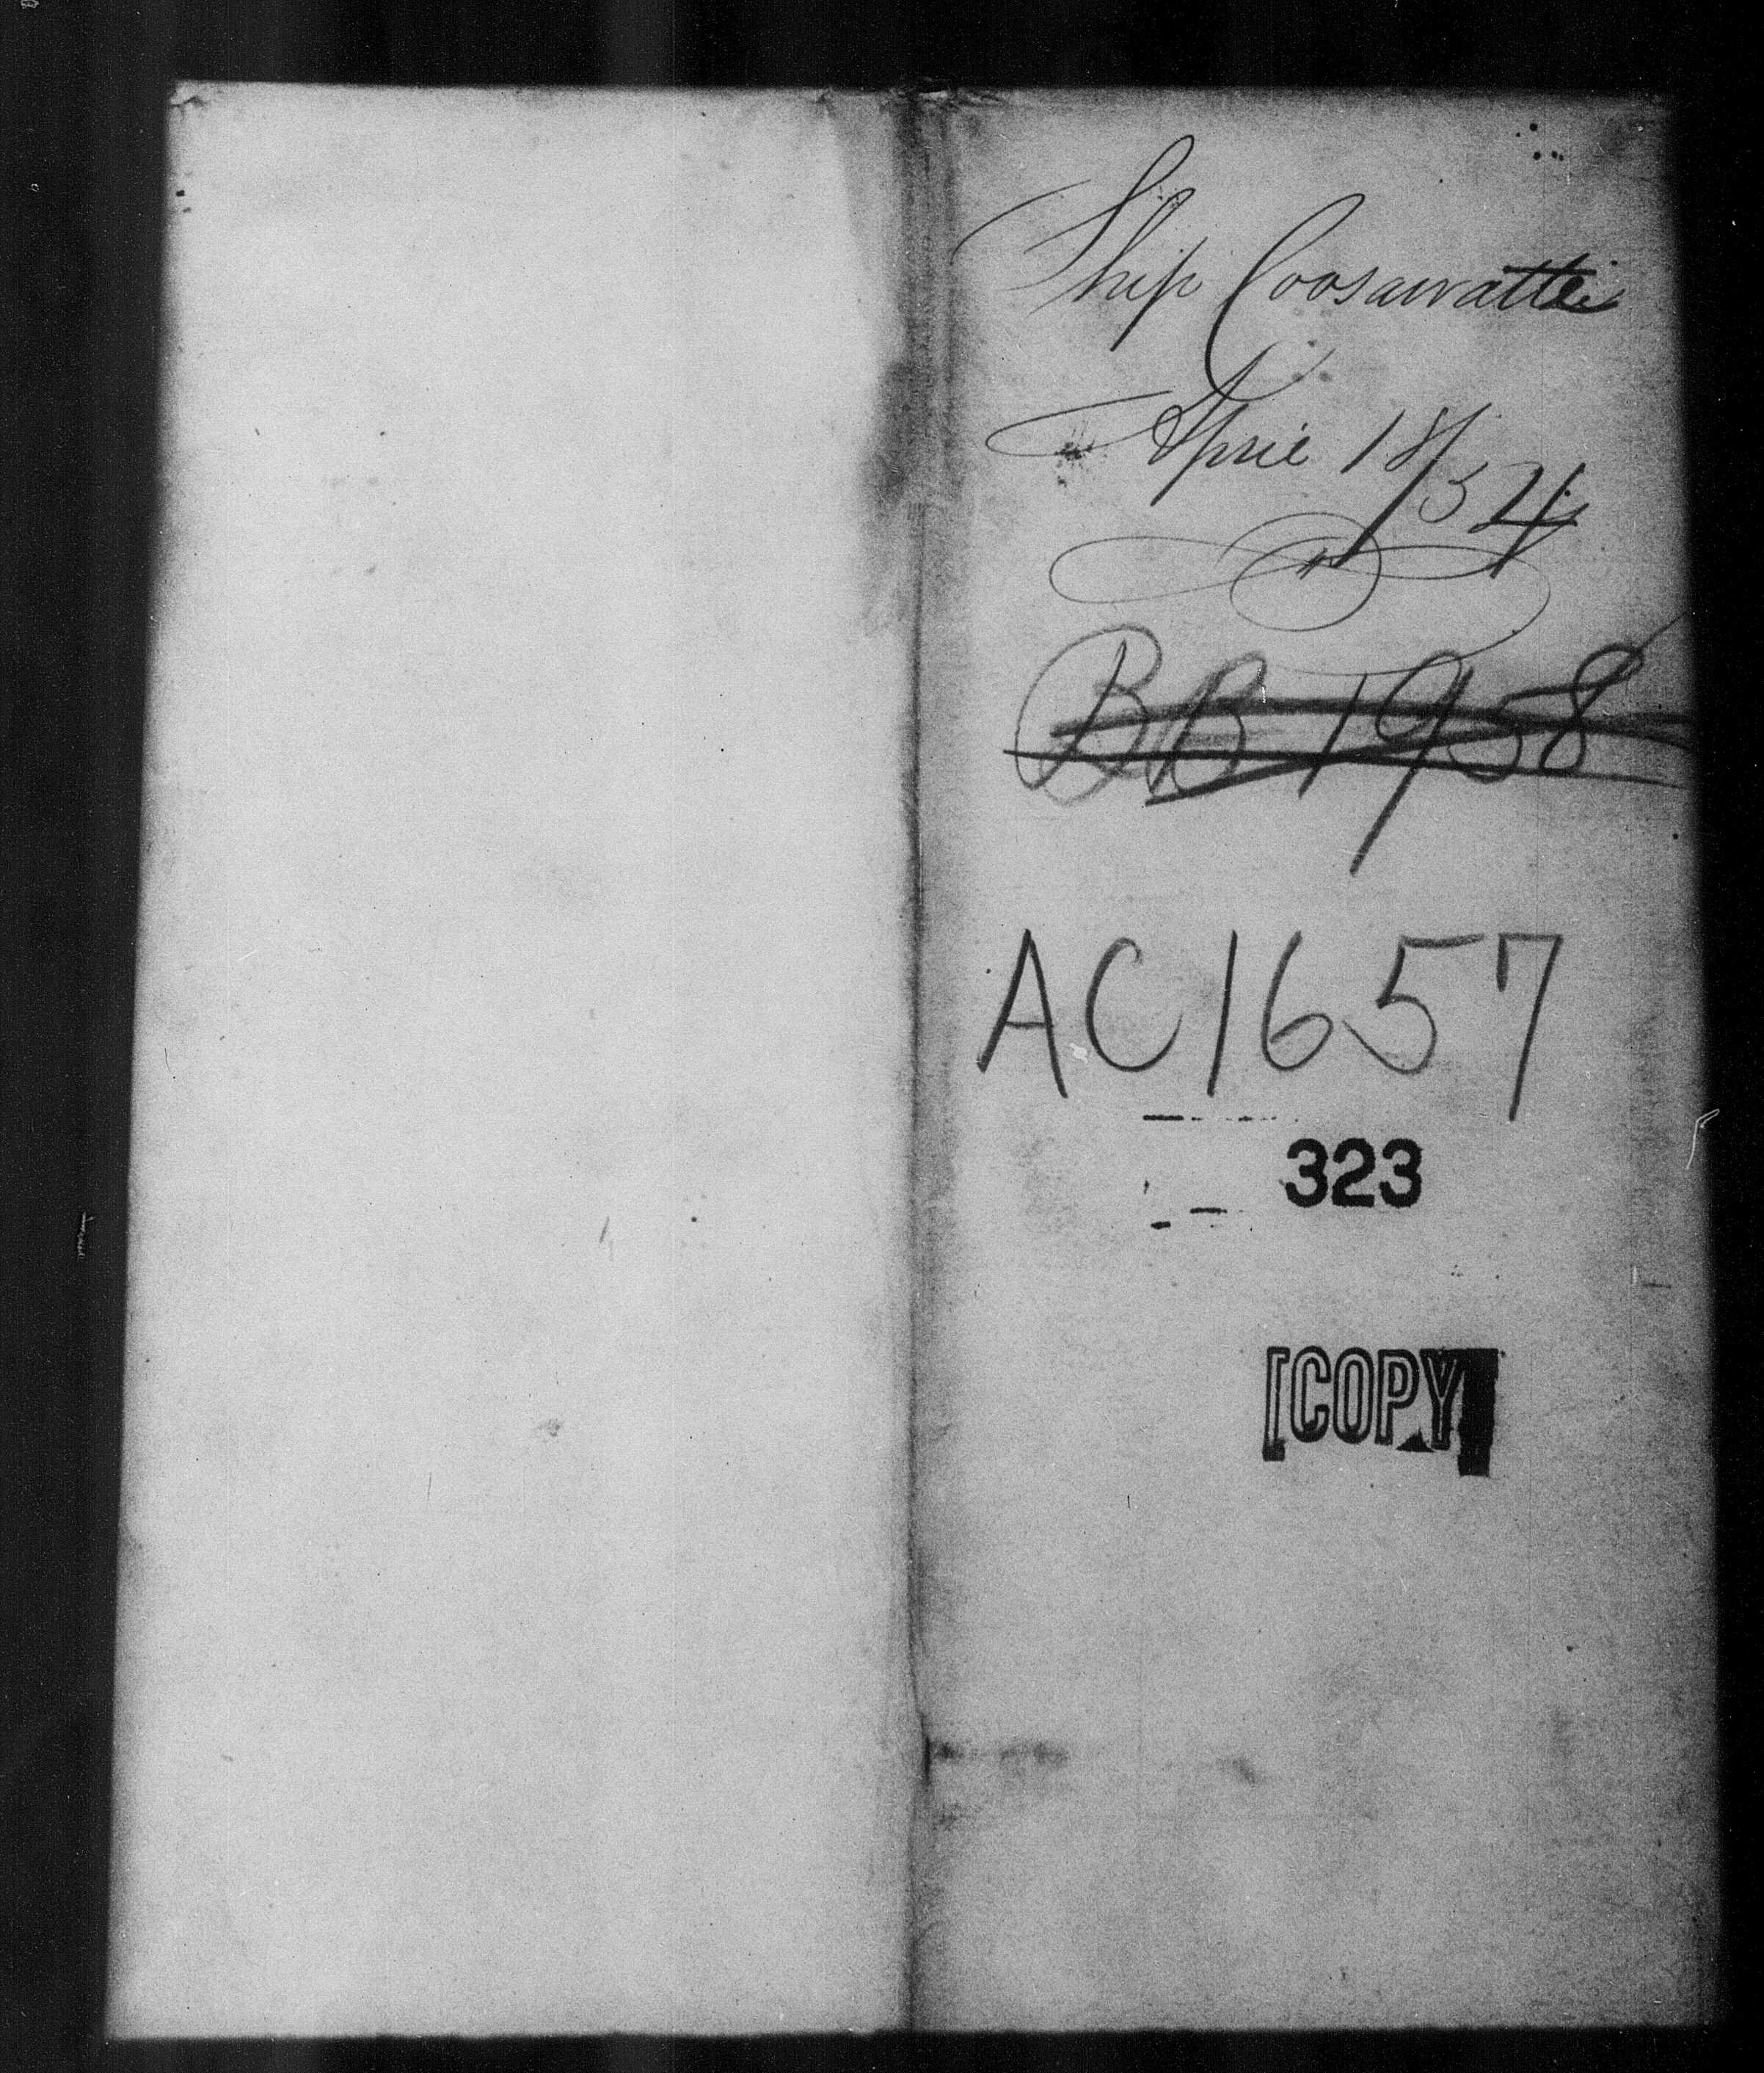 Ship Coosawattee
April 18/54
BB 1958
AC1657
323
[COPY]